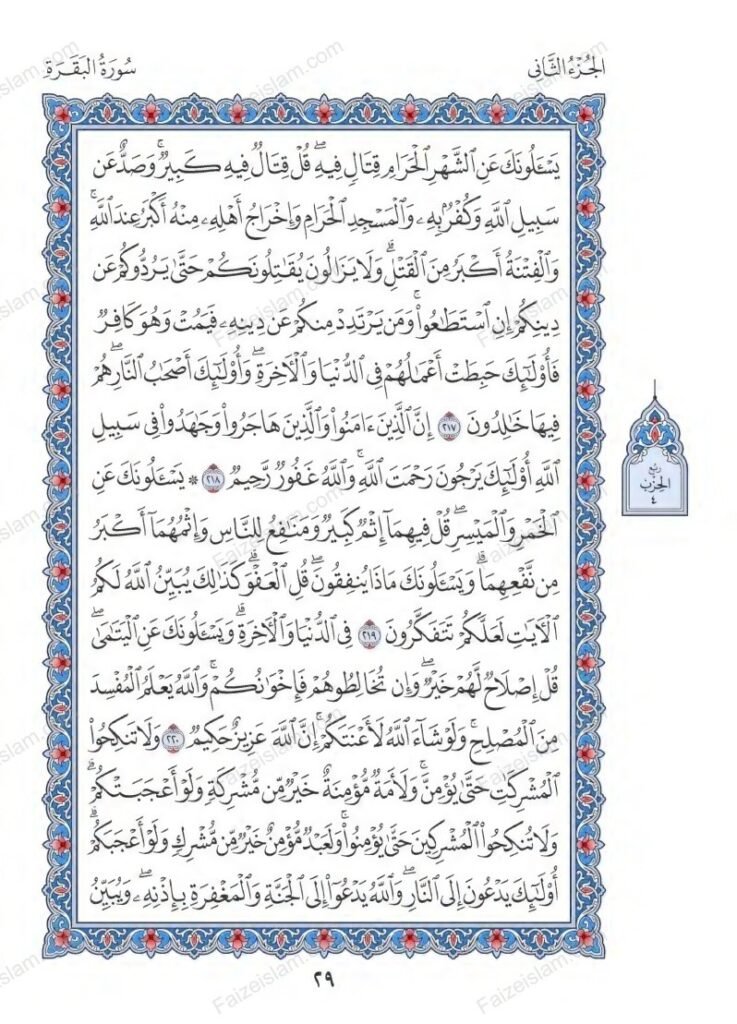 الجُزْءُ الثَّانِى
سُورَةُ البَقَرَةِ
يَسْـَٔلُونَكَ عَنِ ٱلشَّهْرِ ٱلْحَرَامِ قِتَالٍ فِيهِ ۖ قُلْ قِتَالٌ فِيهِ كَبِيرٌ ۚ وَصَدٌّ عَن
سَبِيلِ ٱللَّهِ وَكُفْرٌۢ بِهِۦ وَٱلْمَسْجِدِ ٱلْحَرَامِ وَإِخْرَاجُ أَهْلِهِۦ مِنْهُ أَكْبَرُ عِندَ ٱللَّهِ ۚ
وَٱلْفِتْنَةُ أَكْبَرُ مِنَ ٱلْقَتْلِ ۗ وَلَا يَزَالُونَ يُقَـٰتِلُونَكُمْ حَتَّىٰ يَرُدُّوكُمْ عَن
دِينِكُمْ إِنِ ٱسْتَطَـٰعُوا۟ ۚ وَمَن يَرْتَدِدْ مِنكُمْ عَن دِينِهِۦ فَيَمُتْ وَهُوَ كَافِرٌ
فَأُو۟لَـٰٓئِكَ حَبِطَتْ أَعْمَـٰلُهُمْ فِى ٱلدُّنْيَا وَٱلْـَٔاخِرَةِ ۖ وَأُو۟لَـٰٓئِكَ أَصْحَـٰبُ ٱلنَّارِ ۖ هُمْ
فِيهَا خَـٰلِدُونَ ٢١٧ إِنَّ ٱلَّذِينَ ءَامَنُوا۟ وَٱلَّذِينَ هَاجَرُوا۟ وَجَـٰهَدُوا۟ فِى سَبِيلِ
ٱللَّهِ أُو۟لَـٰٓئِكَ يَرْجُونَ رَحْمَتَ ٱللَّهِ ۚ وَٱللَّهُ غَفُورٌ رَّحِيمٌ ٢١٨ ۞ يَسْـَٔلُونَكَ عَنِ
ٱلْخَمْرِ وَٱلْمَيْسِرِ ۖ قُلْ فِيهِمَآ إِثْمٌ كَبِيرٌ وَمَنَـٰفِعُ لِلنَّاسِ وَإِثْمُهُمَآ أَكْبَرُ
مِن نَّفْعِهِمَا ۗ وَيَسْـَٔلُونَكَ مَاذَا يُنفِقُونَ ۖ قُلِ ٱلْعَفْوَ ۗ كَذَٰلِكَ يُبَيِّنُ ٱللَّهُ لَكُمُ
ٱلْـَٔايَـٰتِ لَعَلَّكُمْ تَتَفَكَّرُونَ ٢١٩ فِى ٱلدُّنْيَا وَٱلْـَٔاخِرَةِ ۗ وَيَسْـَٔلُونَكَ عَنِ ٱلْيَتَـٰمَىٰ ۖ
قُلْ إِصْلَاحٌ لَّهُمْ خَيْرٌ ۖ وَإِن تُخَالِطُوهُمْ فَإِخْوَٰنُكُمْ ۚ وَٱللَّهُ يَعْلَمُ ٱلْمُفْسِدَ
مِنَ ٱلْمُصْلِحِ ۚ وَلَوْ شَآءَ ٱللَّهُ لَأَعْنَتَكُمْ ۚ إِنَّ ٱللَّهَ عَزِيزٌ حَكِيمٌ ٢٢٠ وَلَا تَنكِحُوا۟
ٱلْمُشْرِكَـٰتِ حَتَّىٰ يُؤْمِنَّ ۚ وَلَأَمَةٌ مُّؤْمِنَةٌ خَيْرٌ مِّن مُّشْرِكَةٍ وَلَوْ أَعْجَبَتْكُمْ ۗ
وَلَا تُنكِحُوا۟ ٱلْمُشْرِكِينَ حَتَّىٰ يُؤْمِنُوا۟ ۚ وَلَعَبْدٌ مُّؤْمِنٌ خَيْرٌ مِّن مُّشْرِكٍ وَلَوْ أَعْجَبَكُمْ ۗ
أُو۟لَـٰٓئِكَ يَدْعُونَ إِلَى ٱلنَّارِ ۖ وَٱللَّهُ يَدْعُوٓا۟ إِلَى ٱلْجَنَّةِ وَٱلْمَغْفِرَةِ بِإِذْنِهِۦ ۖ وَيُبَيِّنُ
ربع
الحزب
٤
٢٩
Faizeislam.com